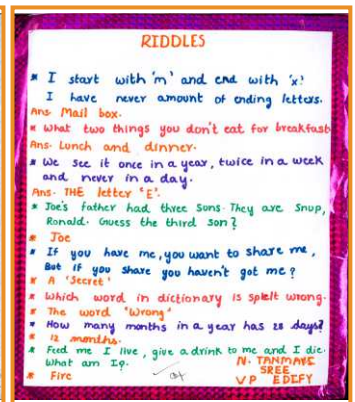 RIDDLES
* I start with 'm' and end with 'x'
I have never amount of ending letters.
Ans- Mail box.
* What two things you don't eat for breakfast
Ans- Lunch and dinner.
* We see it once in a year, twice in a week
and never in a day.
Ans- THE letter 'E'.
* Joe's father had three sons. They are Snup,
Ronald. Guess the third son?
* Joe
* If you have me, you want to share me,
But if you share you haven't got me?
* A 'Secret'
* Which word in dictionary is spelt wrong.
* The word 'Wrong'
* How many months in a year has 28 days?
* 12 months.
* Feed me I live, give a drink to me and I die.
What am I?
* Fire
N. TANMAYE
SREE
VP EDIFY